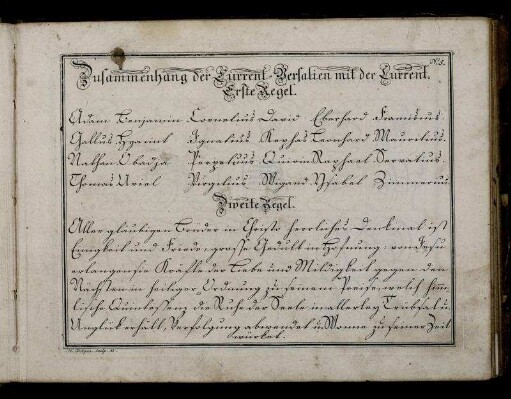 N. 5.
Zusammenhang der Current-Versalien mit der Current.
Erste Regel.
Adam Benjamin Cornelius David Eberhard Franciscus
Gallus Hyacint Ignatius Kephas Leonhard Mauritius
Nathan Obadja Perpetuus Quirin Raphael Servatius
Thomas Uriel Virgilius Wigand Ysabel Zimmerius
Zweite Regel.
Aller glaubigen Bruder in Christo herrliches Denkmal ist
Einigkeit und Friede, grosse Gedult in Hofnung: von Jesu
erlangen sie Kräfte der Liebe und Mildigkeit gegen den
Nächsten in heiliger Ordnung zu seinem Preise, welch himm
lische Quintessenz die Ruhe der Seele in allerley Trübsal u.
Unglück erhält, Verfolgung abwendet u. Wonne zu seiner Zeit
würket.